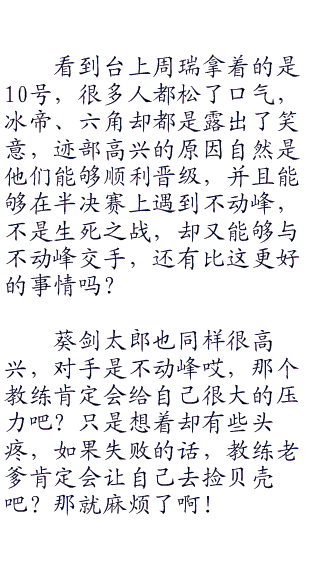 看到台上周瑞拿着的是
10号，很多人都松了口气，
冰帝、六角却都是露出了笑
意，迹部高兴的原因自然是
他们能够顺利晋级，并且能
够在半决赛上遇到不动峰，
不是生死之战，却又能够与
不动峰交手，还有比这更好
的事情吗？
葵剑太郎也同样很高
兴，对手是不动峰哎，那个
教练肯定会给自己很大的压
力吧？只是想着却有些头
疼，如果失败的话，教练老
爹肯定会让自己去捡贝壳
吧？那就麻烦了啊！